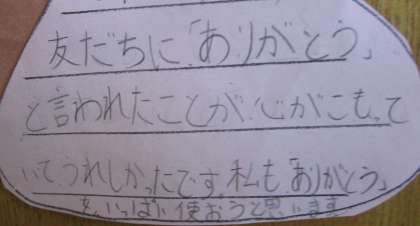 友だちに「ありがとう」
と言われたことが心がこもって
いてうれしかったです。私も「ありがとう」
をいっぱい使おうと思います